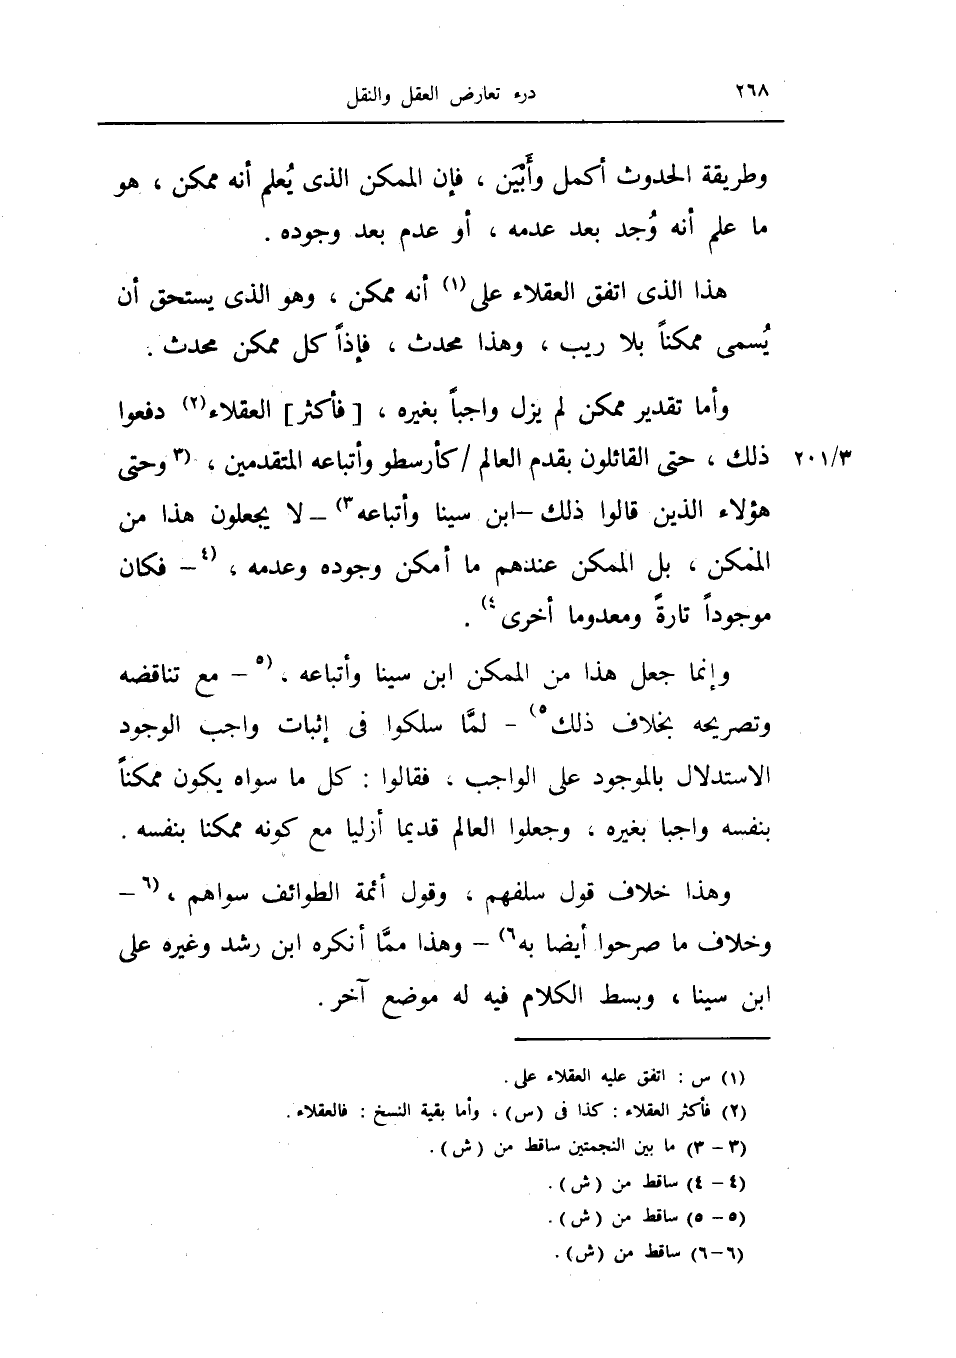 ٢٦٨ درء تعارض العقل والنقل
وطريقة الحدوث أكمل وأَبْيَن ، فإن الممكن الذى يُعلم أنه ممكن ، هو
ما علم أنه وُجد بعد عدمه ، أو عدم بعد وجوده .
هذا الذى اتفق العقلاء على(١) أنه ممكن ، وهو الذى يستحق أن
يُسمى ممكناً بلا ريب ، وهذا محدث ، فإذاً كل ممكن محدث .
وأما تقدير ممكن لم يزل واجباً بغيره ، [ فأكثر] العقلاء(٢) دفعوا
٢٠١/٣ ذلك ، حتى القائلون بقدم العالم /كأرسطو وأتباعه المتقدمين ، (٣ وحتى
هؤلاء الذين قالوا ذلك –ابن سينا وأتباعه٣) – لا يجعلون هذا من
الممكن ، بل الممكن عندهم ما أمكن وجوده وعدمه ، (٤– فكان
موجوداً تارةً ومعدوما أخرى٤) .
وإنما جعل هذا من الممكن ابن سينا وأتباعه ، (٥ – مع تناقضه
وتصريحه بخلاف ذلك٥) – لمَّا سلكوا فى إثبات واجب الوجود
الاستدلال بالموجود على الواجب ، فقالوا : كل ما سواه يكون ممكناً
بنفسه واجبا بغيره ، وجعلوا العالم قديما أزليا مع كونه ممكنا بنفسه .
وهذا خلاف قول سلفهم ، وقول أئمة الطوائف سواهم ، (٦ –
وخلاف ما صرحوا أيضا به٦) – وهذا ممَّا أنكره ابن رشد وغيره على
ابن سينا ، وبسط الكلام فيه له موضع آخر .
(١) س : اتفق عليه العقلاء على .
(٢) فأكثر العقلاء : كذا فى (س) ، وأما بقية النسخ : فالعقلاء .
(٣ – ٣) ما بين النجمتين ساقط من (ش) .
(٤ – ٤) ساقط من (ش) .
(٥ – ٥) ساقط من (ش) .
(٦–٦) ساقط من (ش) .